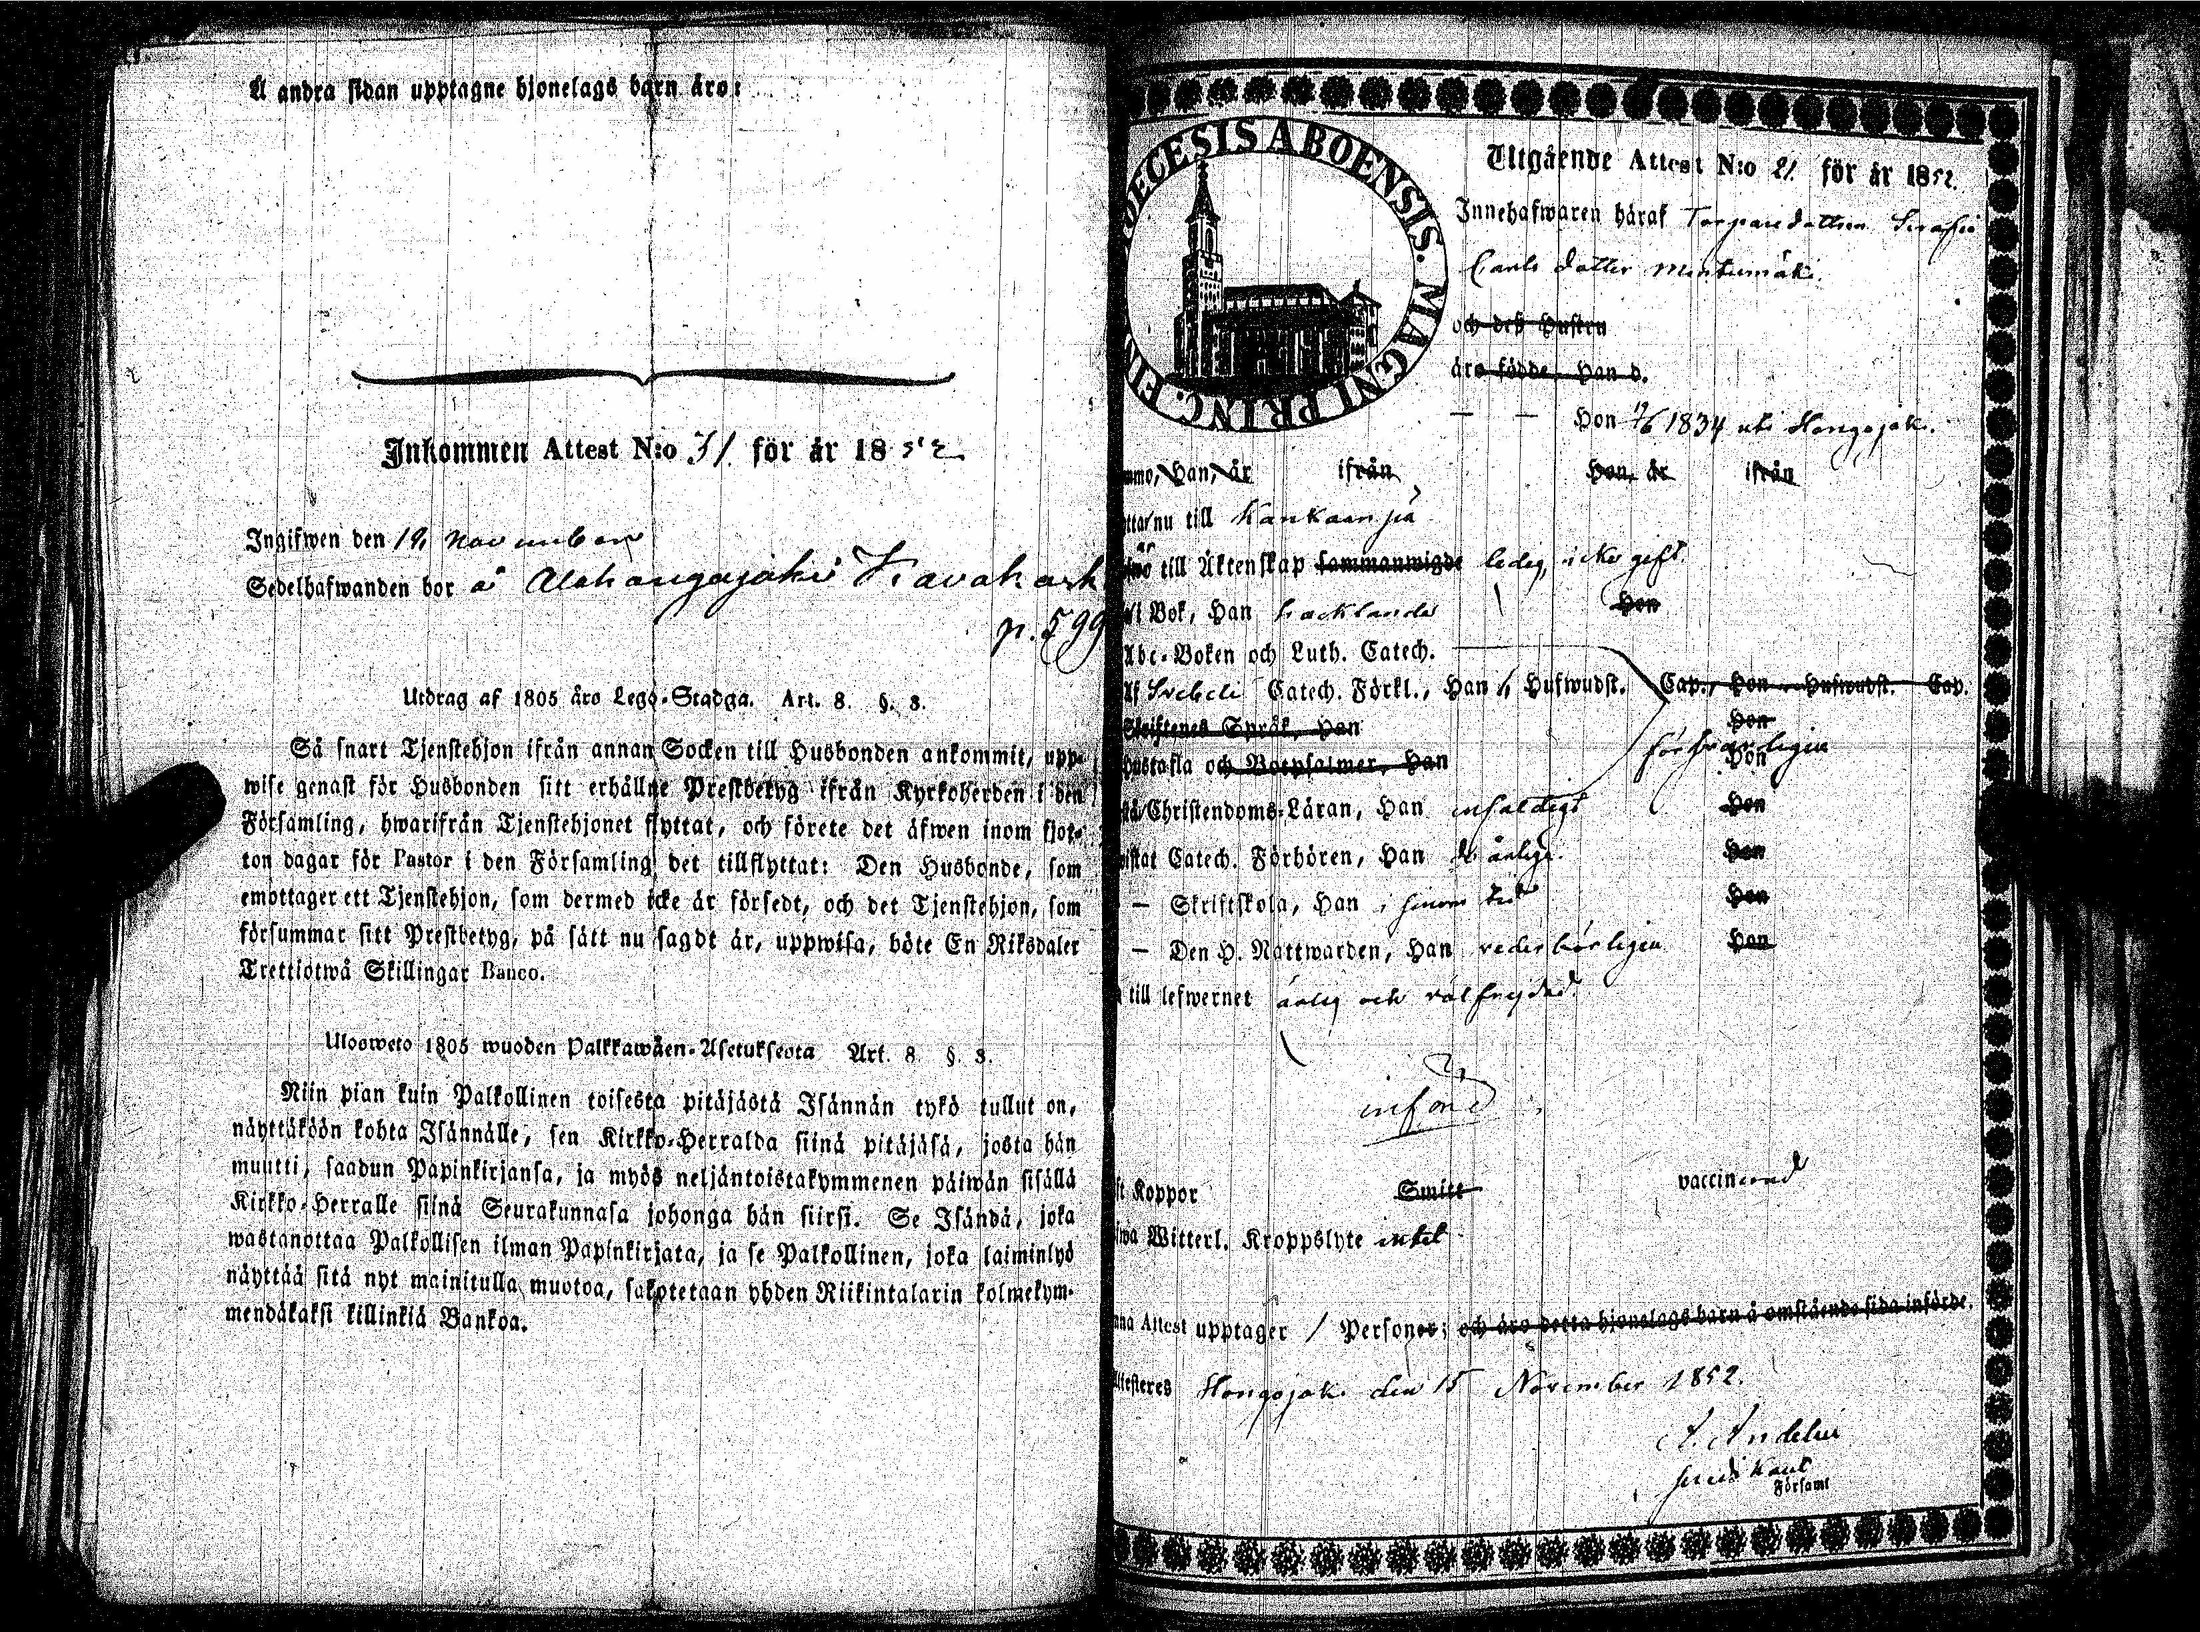 Å andra sidan upptagne hjonelags barn äro:
Inkommen Attest N:o 31. för år 1852
Ingifwen den 19 november
Sedelhafwanden bor å
p. 599
Utdrag af 1805 års Lego-Stadga. Art. 8. §. 3.
Så snart Tjenstehjon ifrån annan Socken till Husbonden ankommit, upp-
wise genast för Husbonden sitt erhållne Prestbetyg ifrån Kyrkoherden i den
Församling, hwarifrån Tjenstehjonet flyttat, och förete det äfwen inom fjor-
ton dagar för Pastor i den Församling det tillflyttat: Den Husbonde, som
emottager ett Tjenstehjon, som dermed icke är försedt, och det Tjenstehjon, som
försummar sitt Prestbetyg, på sätt nu sagdt är, uppwisa, böte En Riksdaler
Trettiotwå Skillingar Banco.
Ulosweto 1805 wuoden Palkkawäen-Asetuksesta Art. 8 §. 3.
Niin pian kuin Palkollinen toisesta pitäjästä Isännän tykö tullut on,
näyttäköön kohta Isännälle, sen Kirkko-Herralda siinä pitäjäsä, josta hän
muutti, saadun Papinkirjansa, ja myös neljäntoistakymmenen päiwän sisällä
Kirkko-Herralle siinä Seurakunnasa johonga hän siirsi. Se Isändä, joka
wastanottaa Palkollisen ilman Papinkirjata, ja se Palkollinen, joka laiminlyö
näyttää sitä nyt mainitulla muotoa, sakotetaan yhden Riikintalarin kolmekym-
mendäkaksi killinkiä Bankoa.
DIOECESIS ABOENSIS. MAGNI PRINC. FIN
Utgående Attest N:o 21. för år 1852.
Innehafwaren häraf Torparedottren Serafia
Carls dotter
och dess Hustru
äro födde, Han d.
— — Hon 19/6 1834 uti Hongojoki.
mmo, Han, är ifrån Hon, är ifrån
ttar nu till Kankaanpää
till Äktenskap sammanwigde ledig, icke gift.
i Bok, Han Hon
Abc-Boken och Luth. Catech.
Af Svebeli Catech. Förkl., Han, Hufwudst. Cap., Hon Hufwudst. Cap.
Skriftenes Språk, Han Hon
Hustafla och Botpsalmer, Han försvarligen Hon
stå Christendoms-Läran, Han enfaldigt Hon
wistat Catech. Förhören, Han do årlige. Hon
— Skriftskola, Han i sinom tid Hon
— Den H. Nattwarden, Han vederbörligen Hon
till lefwernet ärlig och välfrejdad.
införd
st Koppor Smitt vaccinerad
lwa Witterl. Kroppslyte intet
nna Attest upptager 1 Personer; och äro detta hjonelags barn å omstående sida införde.
Attesteras Hongojoki den 15 November 1852.
A. Andelin
Församl